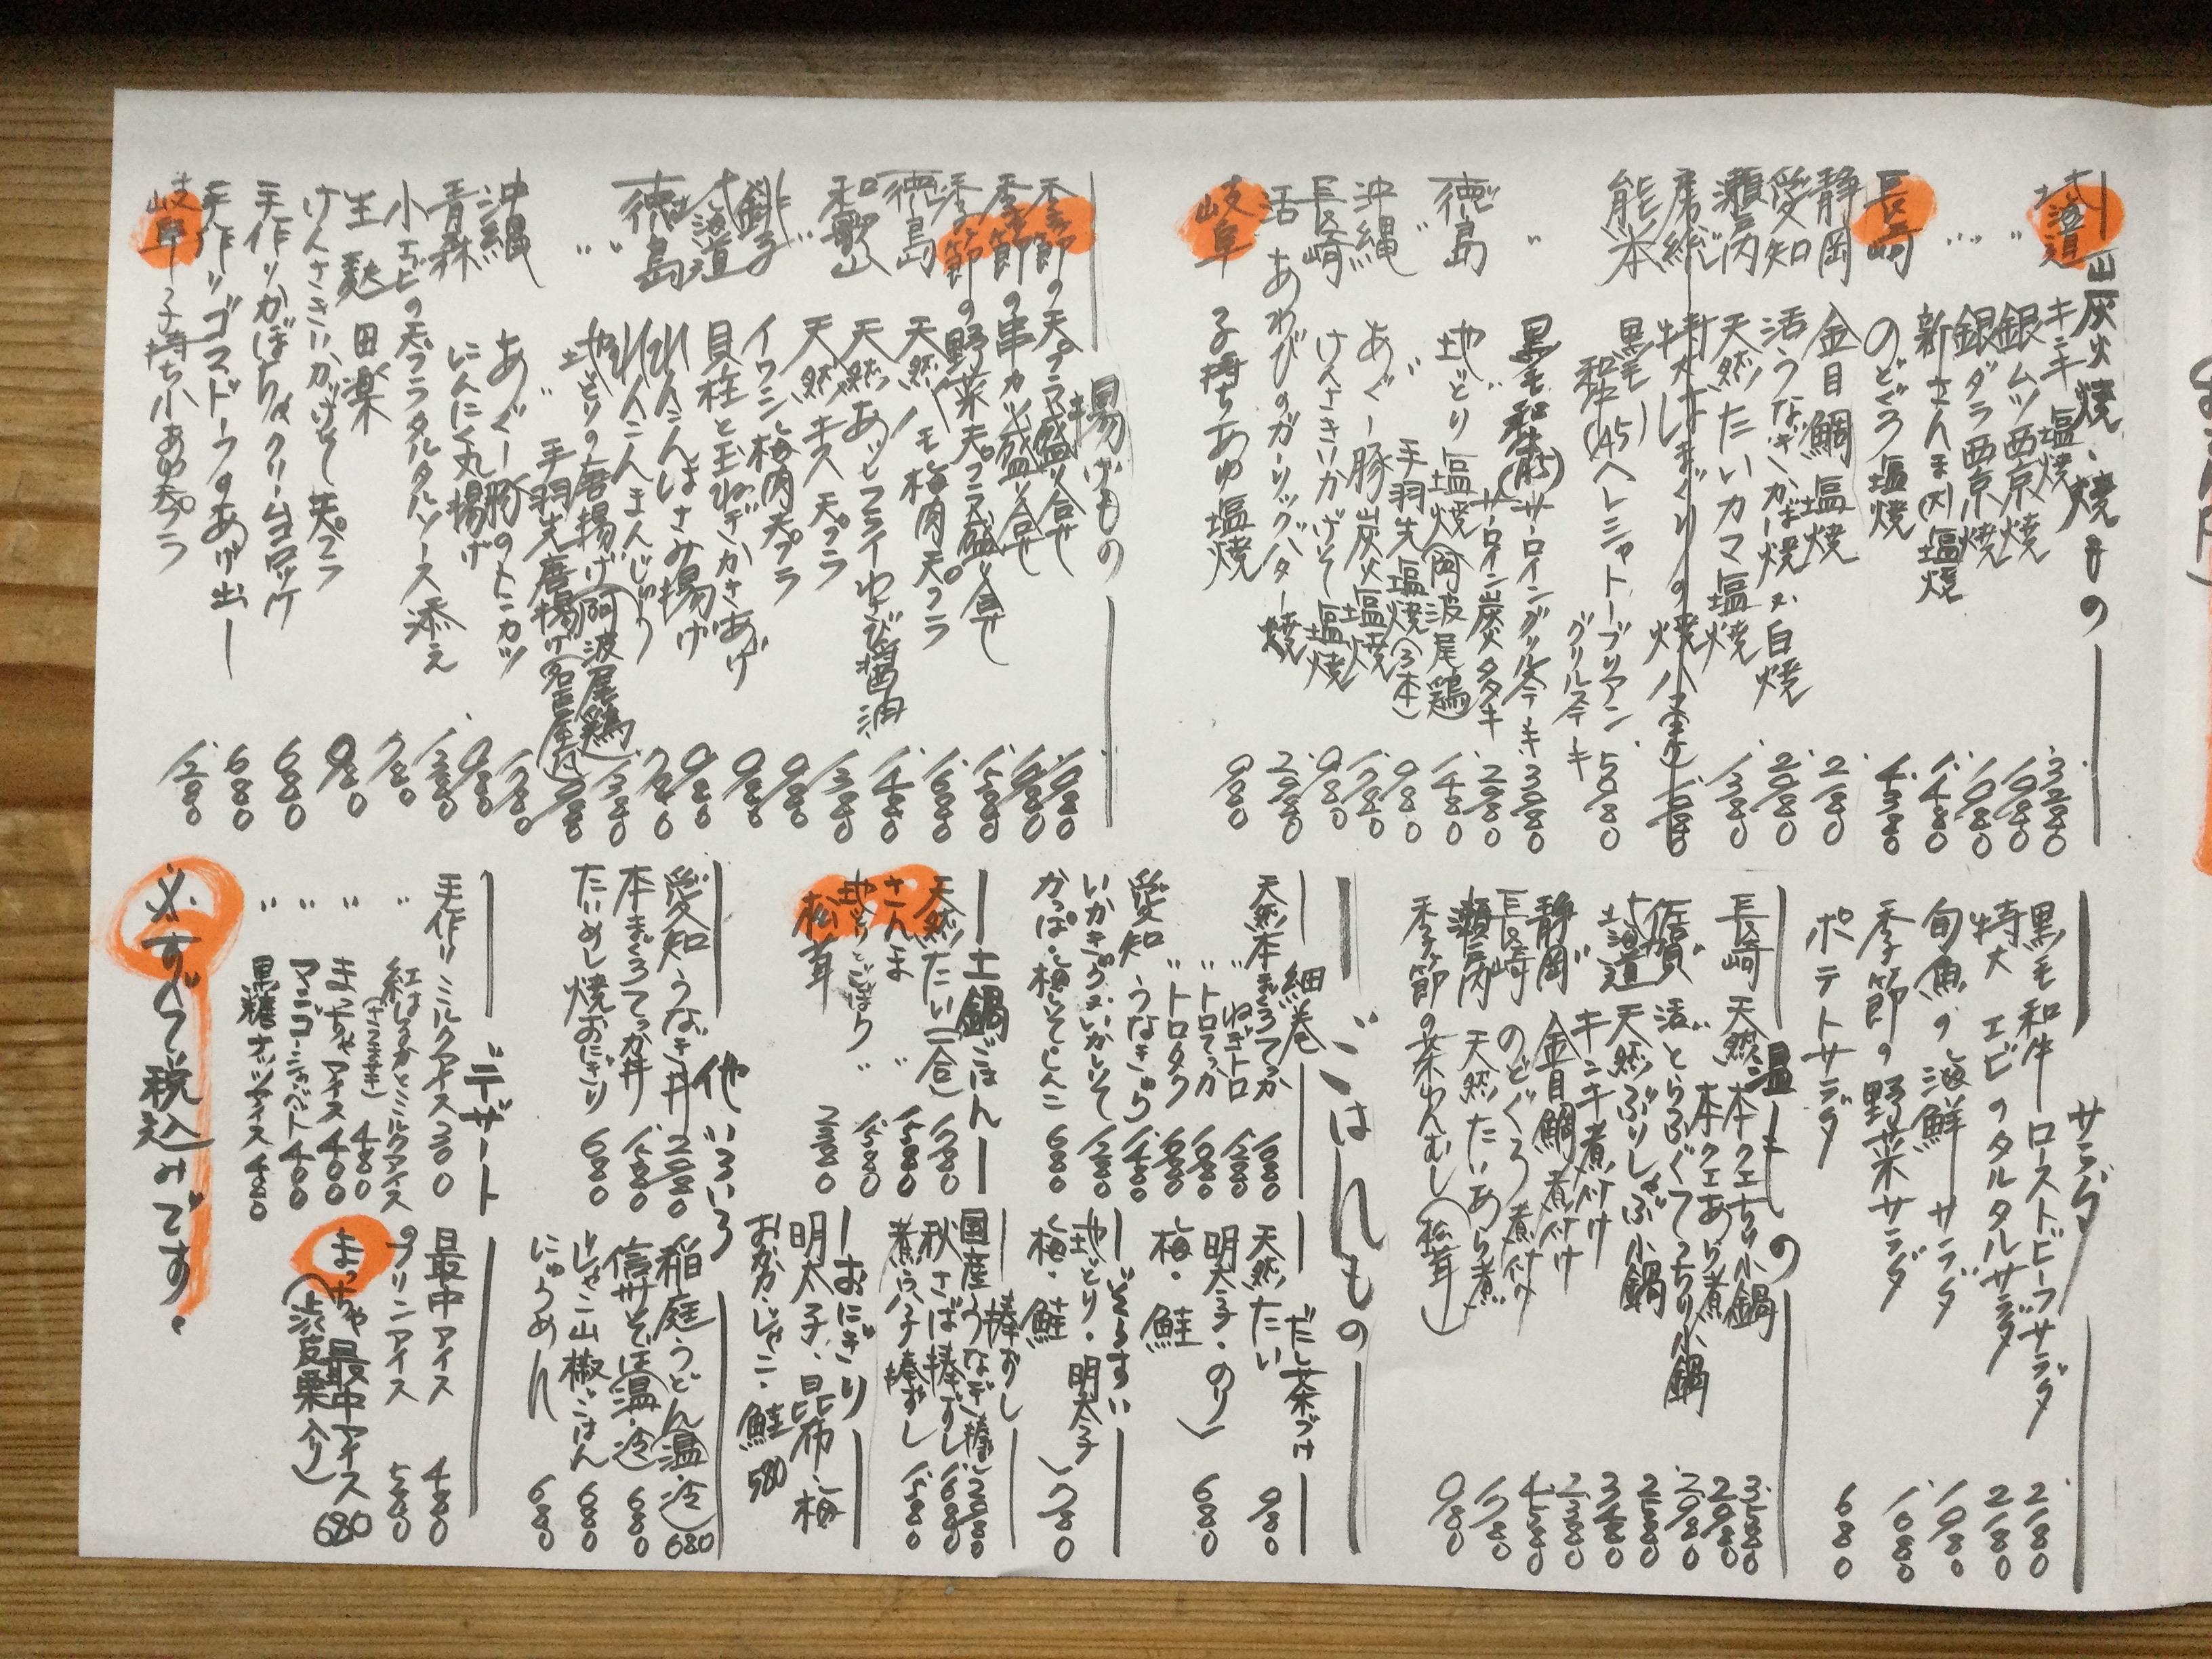 炭火焼・焼もの
北海道 キンキ塩焼 3,280
〃 銀ムツ西京焼 1,980
〃 銀ダラ西京焼 1,980
〃 新さんま(大)塩焼 1,480
長崎 のどぐろ塩焼 4,380
静岡 金目鯛塩焼 2,180
愛知 活うなぎかば焼 又 白焼 2,980
瀬戸内 天然たいカマ塩焼 1,380
房総 特大はまぐりの焼ハマ
熊本 黒毛和牛(A5)ヘレシャトーブリアングリルステーキ 5,080
〃 黒毛和牛(A5)サーロイングリルステーキ
〃 サーロイン炭タタキ 2,980
徳島 地どり塩焼(阿波尾鶏) 1,480
〃 手羽先塩焼(3本) 980
沖縄 あぐー豚炭火塩焼
長崎 けんさきいかげそ塩焼 980
活あわびのガーリックバター焼
岐阜 子持ちあゆ塩焼 980
揚げもの
季節の天プラ盛り合せ 1,980
季節の串カツ盛り合せ
季節の野菜天プラ盛り合せ 1,580
徳島 天然ハモ梅肉天プラ 1,680
和歌山 天然あじフライわさび醤油 1,480
〃 天然キス天プラ 1,380
銚子 イワシ梅肉天プラ 980
北海道 貝柱と玉ねぎかきあげ 980
徳島 れんこんはさみ揚げ 980
〃 れんこんまんじゅう 780
〃 地どりの唐揚げ(阿波尾鶏) 1,380
〃 手羽先唐揚げ(名古屋風)
沖縄 あぐー豚のトンカツ 1,780
青森 にんにく丸揚げ 980
小エビの天プラタルタルソース添え 1,380
生麩田楽 780
けんさきいかげそ天プラ 980
手作りかぼちゃクリームコロッケ 680
手作りゴマドーフのあげ出し 680
岐阜 子持ち小あゆ天プラ 1,280
サラダ
黒毛和牛ローストビーフサラダ 2,180
特大エビのタルタルサラダ 2,180
旬魚の海鮮サラダ 1,980
季節の野菜サラダ 1,080
ポテトサラダ 680
温もの
長崎 天然本クエちり小鍋 3,580
天然本クエあら煮 2,980
佐賀 活とらふぐてっちり小鍋 2,980
北海道 天然ぶりしゃぶ小鍋 2,580
キンキ煮付け 3,480
静岡 金目鯛煮付け 2,380
長崎 のどぐろ煮付け 4,580
瀬戸内 天然たいあら煮 1,780
季節の茶わんむし(松茸) 980
ごはんもの
細巻
天然本まぐろてっか 1,680
〃 ねぎトロ 1,280
〃 トロてっか 1,680
〃 トロタク 1,680
愛知 うなきゅう 1,480
いかきゅう又いかしそ 1,280
かっぱ・梅しそ・しんこ 680
だし茶づけ
天然たい 980
明太子・のり
梅・鮭 680
ぞうすい
地どり・明太子
梅・鮭 780
土鍋ごはん
天然たい(一合) 1,780
さんま 〃 1,580
地どりごぼう 1,580
松茸 〃 2,380
棒ずし
国産うなぎ棒ずし 2,980
秋さば棒ずし 1,680
煮穴子棒ずし 1,580
おにぎり
明太子、昆布、梅
おかか・じゃこ・鮭 580
他いろいろ
愛知うなぎ丼 2,980
本まぐろてっか丼 1,580
たいめし焼おにぎり 680
稲庭うどん(温・冷) 680
信州そば(温・冷) 680
じゃこ山椒ごはん 680
にゅうめん 680
デザート
手作りミルクアイス 300
〃 紅はるか(さつま芋)とミルクアイス 480
〃 まっちゃアイス 400
〃 マンゴーシャーベット 400
〃 黒糖ナッツアイス 480
最中アイス 480
プリンアイス 580
まっちゃ最中アイス 680
(渋皮栗入り)
※すべて税込みです。